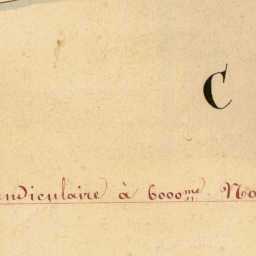 C
ndiculaire à 6000me No